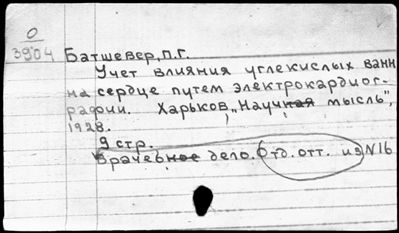 0
3904 Батшевер, П.Г.
Учет влияния углекислых ванн
на сердце путем электрокардиог-
рафии. Харьков, „Научная мысль",
1928.
9 стр.
Врачебное дело. Отд. отт. из N16